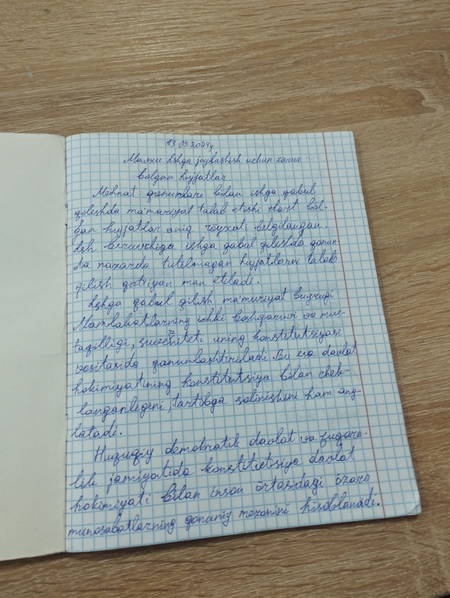 13.03.2024y
Mavzu: Ishga joylashish uchun zarur
bo'lgan hujjatlar.
Mehnat qonunlari bilan ishga qabul
qilishda ma'muriyat talab etishi shart bol-
gan hujjatlar aniq ro'yxati belgilangan.
Ish beruvchiga ishga qabul qilishda qonun-
da nazarda tutilmagan hujjatlarni talab
qilish qat'iyan man etiladi.
Ishga qabul qilish ma'muriyat buyrug'i
Mamlakatlarning ichki boshqaruvi va mus-
taqilligi, suvereniteti uning konstitutsiyasi
vositasida qonunlashtiriladi. Bu esa davlat
hokimiyatining konstitutsiya bilan chek-
langanligini, tartibga solinishini ham ang-
latadi.
Huquqiy demokratik davlat va fuqaro-
lik jamiyatida konstitutsiya davlat
hokimiyati bilan inson o'rtasidagi o'zaro
munosabatlarning qonuniy mezonini hisoblanadi.